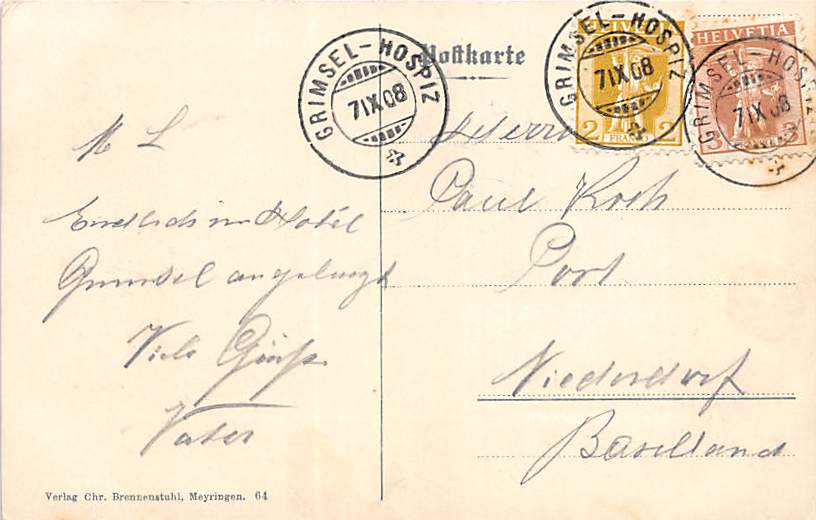 Postkarte
GRIMSEL-HOSPIZ
7 IX 08
GRIMSEL-HOSPIZ
7 IX 08
GRIMSEL-HOSPIZ
7 IX 08
HELVETIA
2 FRANCO 2
HELVETIA
3
M L
Endlich im Hotel
Grimsel angelangt
Viele Grüsse
Vater
Herrn
Paul Roth
Post
Niederdorf
Baselland
Verlag Chr. Brennenstuhl, Meyringen. 64